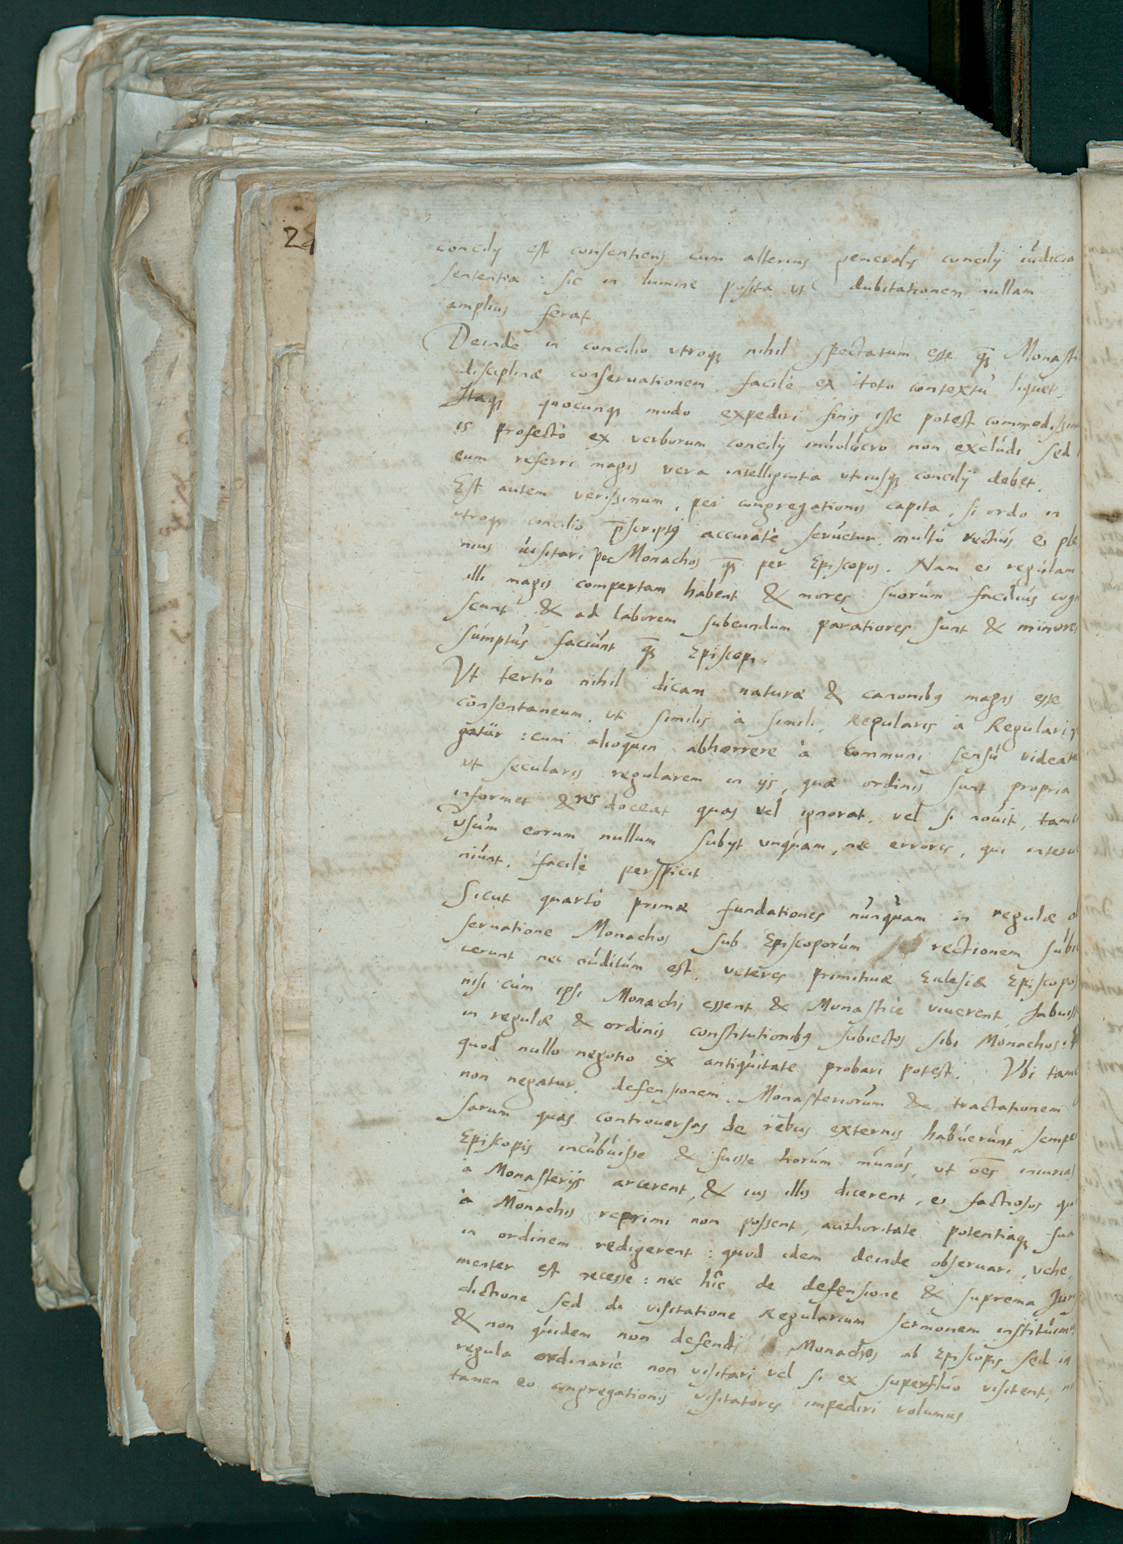 25
concilij est consentiens cum alterius generalis concilij iudicio
sententia: sic in lumine posita ut dubitationem nullam
amplius ferat
Deinde in concilio utroq nihil spectatum esse q̄ Monasti
disciplinæ conseruationem facile ex toto contextu liquet.
Itaq quocunq modo expediri finis iste potest commodissim
is profectò ex verborum concilij inuolucro non excludi sed
eum referri magis vera intelligentia utriusq concilij debet.
Est autem verissimum, per congregationis capita, si ordo in
utroq concilio p̄scriptq accuratè seruetur multo rectius et ple
nius visitari per Monachos q̄ per Episcopos. Nam et regulam
illi magis compertam habent & mores suorum facilius cog
scunt & ad laborem subeundum paratiores sunt & minores
sumptus faciunt q̄ Episcopi.
Vt tertiò nihil dicam naturæ & canonibq magis esse
consentaneum, ut similis à simili, Regularis a Regulari
gatur: cum alioquin abhorrere à communi sensu videat
ut secularis regularem in ijs, quæ ordinis sunt propria
informet & res doceat quas vel ignorat, vel si nouit, tam
usum eorum nullum subijt unquam, nec errores, qui interu
niunt, facilè perspicit
Sicut quartò primæ fundationes nunquam in regulæ o
seruatione Monachos sub Episcoporum rectionem subie
cerunt nec auditum est, veteres primitiuæ Ecclesiæ Episcopos
nisi cùm ipsi Monachi essent & Monasticè viuerent, habuiss
in regulæ & ordinis constitutionibq subiectos sibi Monachos:
quod nullo negotio ex antiquitate probari potest. Vbi tam
non negatur, defensionem Monasteriorum & tractationem
sarum quas controuersas de rebus externis habuerunt, sempe
Episcopis incubuisse & fuisse horum munus, ut oēs iniurias
a Monasterijs arcerent, & ius illis dicerent, et factiosos qu
à Monachis reprimi non possent, authoritate potentiaq sua
in ordinem redigerent: quod idem deinde obseruari, vehe,
menter est necesse: nec hîc de defensione & suprema Juri
dictione sed de visitatione Regularium sermonem instituim
& non quidem non defendi Monachos ab Episcopis sed in
regula ordinariè non visitari vel si ex superfluo visitent,
tamen eo congregationis visitatores impediri volumus